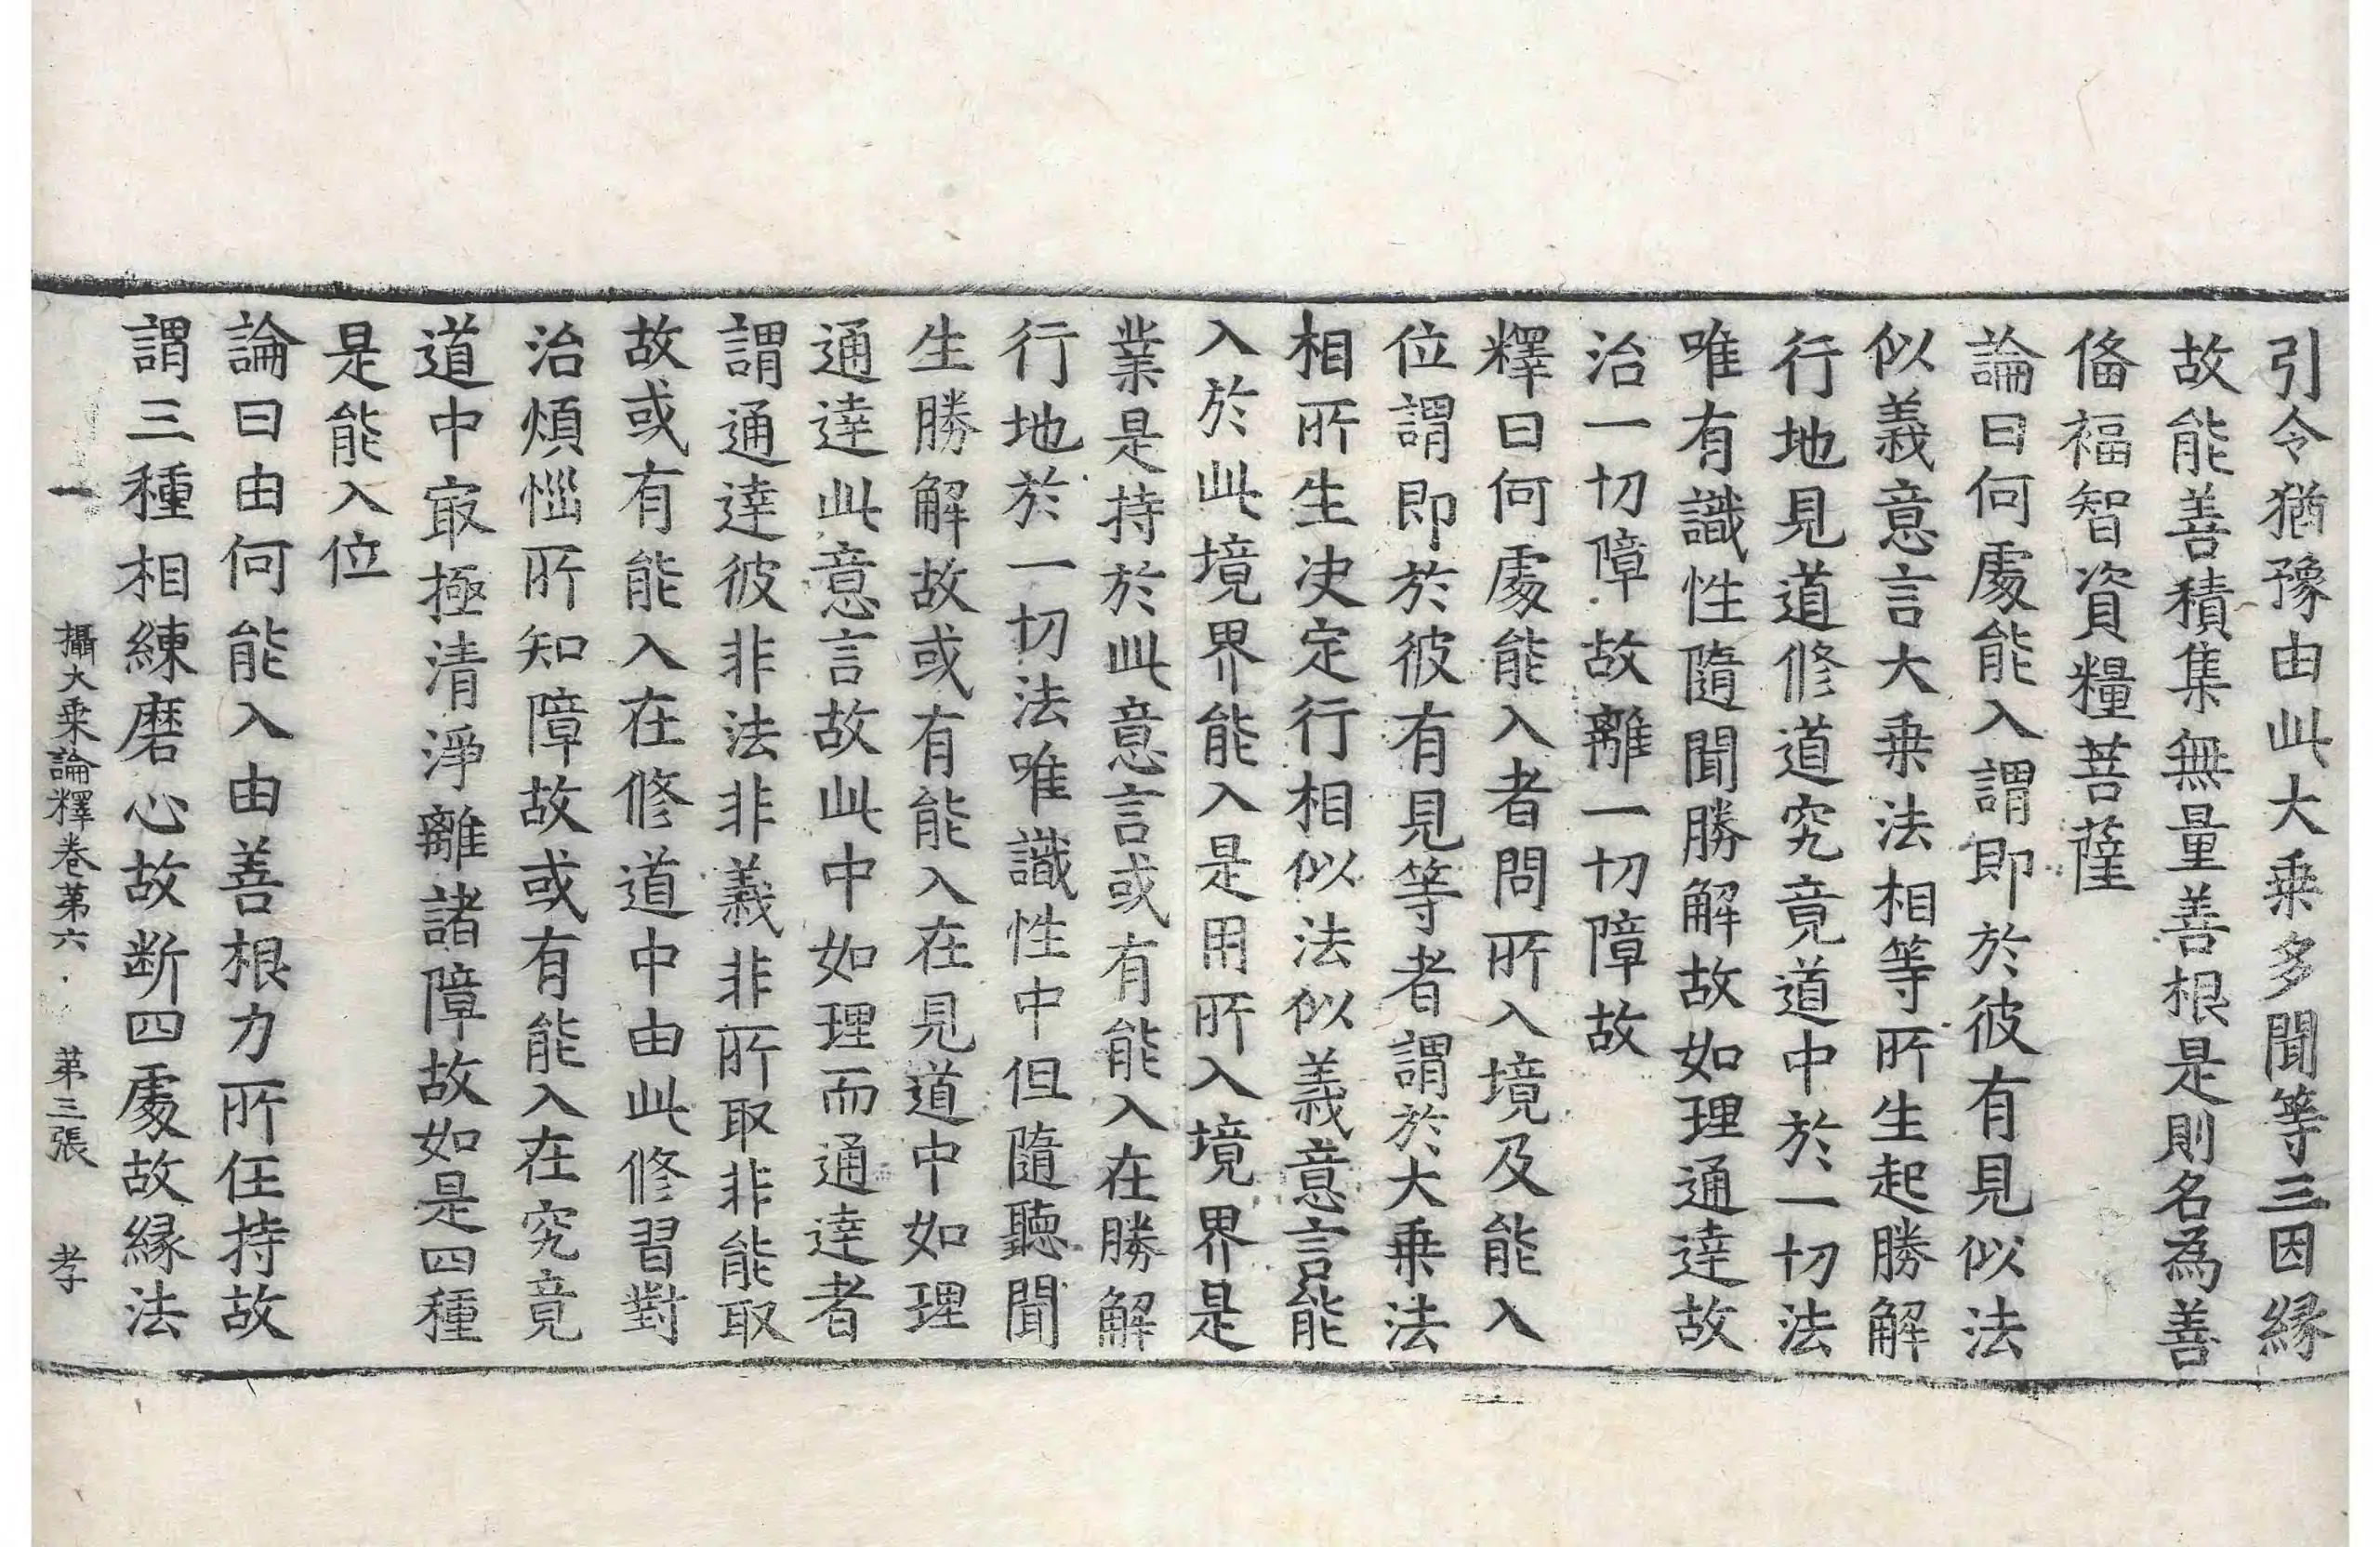 引令猶豫由此大乗多聞等三因縁
故能善積集無量善根是則名為善
俻福智資糧菩薩
論曰何處能入謂即於彼有見似法
似義意言大乗法相等所生起勝解
行地見道修道究竟道中於一切法
唯有識性隨聞勝解故如理通達故
治一切障故離一切障故
釋曰何處能入者問所入境及能入
位謂即於彼有見等者謂於大乗法
相所生決定行相似法似義意言能
入於此境界能入是用所入境界是
業是持於此意言或有能入在勝解
行地於一切法唯識性中但隨聽聞
生勝解故或有能入在見道中如理
通達此意言故此中如理而通達者
謂通達彼非法非義非所取非能取
故或有能入在修道中由此修習對
治煩惱所知障故或有能入在究竟
道中㝡極清淨離諸障故如是四種
是能入位
論曰由何能入由善根力所任持故
謂三種相練磨心故断四處故縁法
一 攝大乗論釋卷第六 第三張 孝